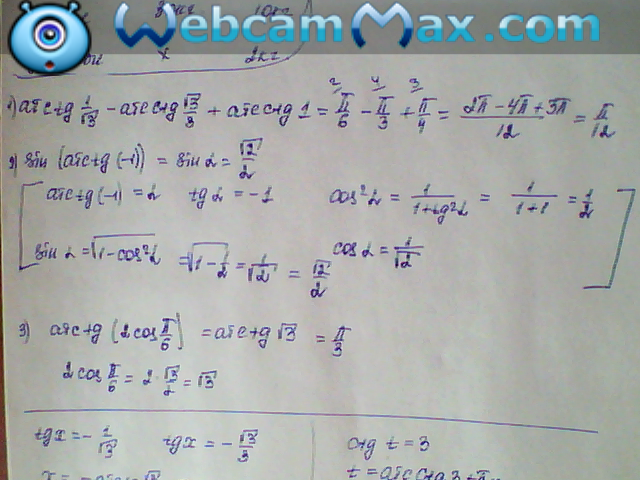 WebcamMax.com
10кг
x 2кг
1) arctg 1/√3 - arcctg √3/3 + arcctg 1 = π/6 - π/3 + π/4 = (2π - 4π + 3π)/12 = π/12
2 4 3
2) sin (arctg (-1)) = sin α = √2/2
arctg (-1) = α tg α = -1 cos²α = 1/(1+tg²α) = 1/(1+1) = 1/2
sin α = √(1-cos²α) = √(1-1/2) = 1/√2 = √2/2 cos α = 1/√2
3) arctg (2cos π/6) = arctg √3 = π/3
2cos π/6 = 2·√3/2 = √3
tgx = -1/√3 tgx = -√3/3 ctg t = 3
t = arcctg 3 + π